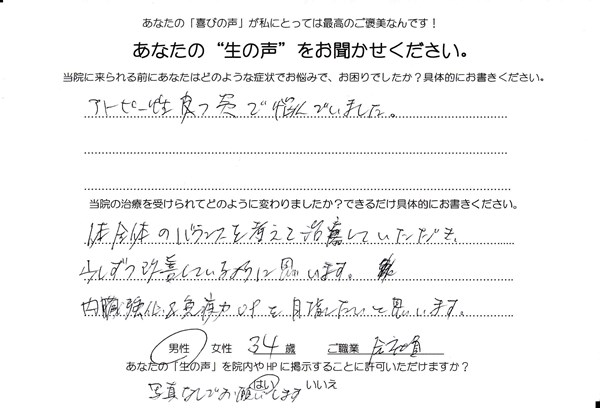 あなたの「喜びの声」が私にとっては最高のご褒美なんです！
あなたの“生の声”をお聞かせください。
当院に来られる前にあなたはどのような症状でお悩みで、お困りでしたか？具体的にお書きください。
アトピー性皮フ炎で悩んでいました。
当院の治療を受けられてどのように変わりましたか？できるだけ具体的にお書きください。
体全体のバランスを考えて治療していただき、
少しずつ改善しているように思います。
内臓強化&免疫力UPを目指したいと思います。
男性 女性 34 歳 ご職業 会社員
あなたの「生の声」を院内やHPに掲示することに許可いただけますか？
はい いいえ
写真なしでお願いします